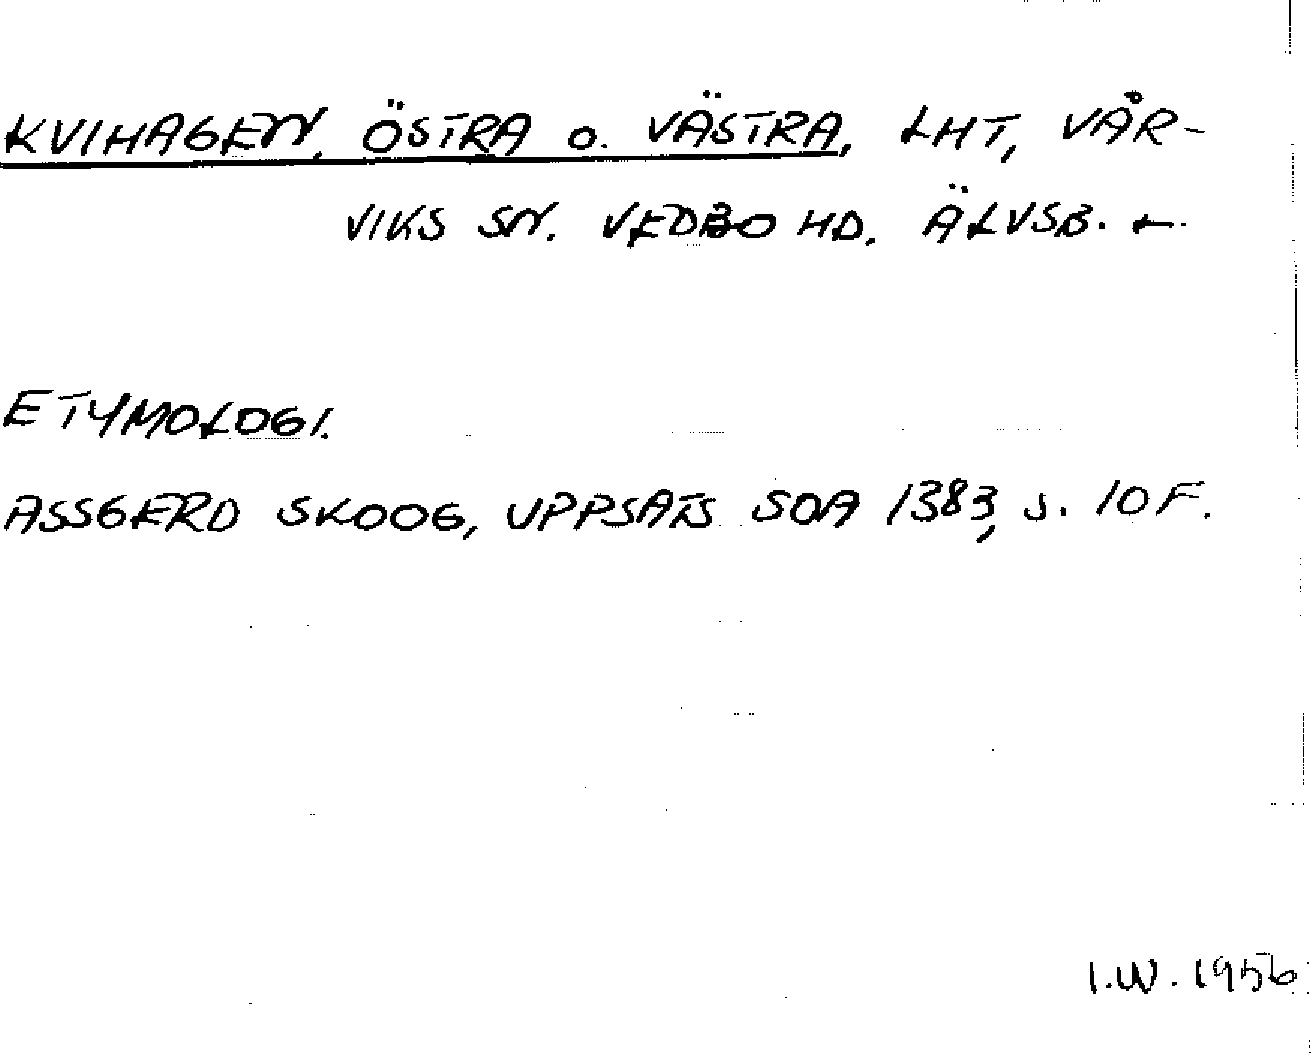 KVIHAGEN, ÖSTRA o. VÄSTRA, LHT, VÅR-
VIKS SN. VEDBO HD. ÄLVSB. L.
ETYMOLOGI.
ASSGERD SKOOG, UPPSATS SOA 1383, s. 10 F.
I.W. 1956